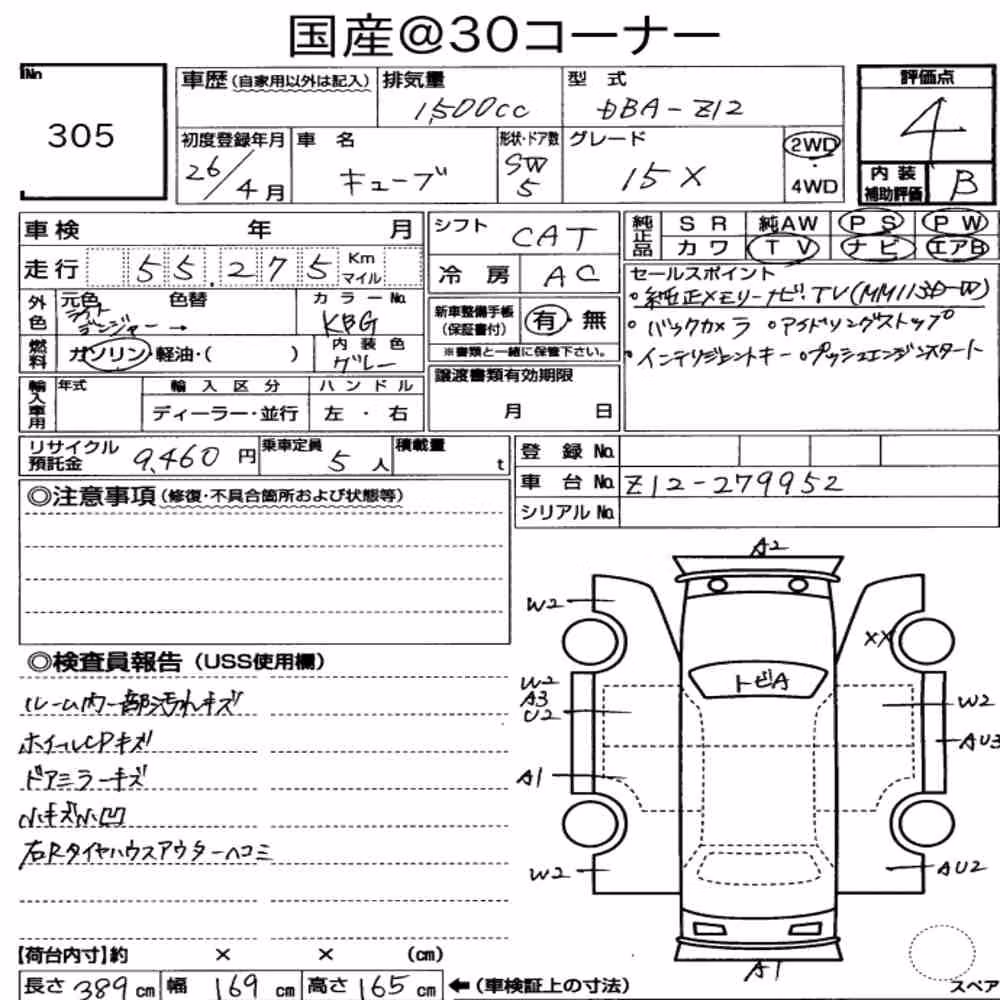 国産@30コーナー
No
305
車歴(自家用以外は記入)
排気量
1,500cc
型式
DBA-Z12
評価点
4
初度登録年月
26/4月
車名
キューブ
形状・ドア数
SW
5
グレード
15X
2WD
・
4WD
内装
補助評価
B
車検 年 月
走行 55,275 Km
マイル
外色
元色 色替
ライト
ジンジャー→
カラーNo.
KBG
燃料
ガソリン・軽油・( )
内装色
グレー
輸入車用
年式
輸入区分
ディーラー・並行
ハンドル
左・右
シフト
CAT
冷房
AC
新車整備手帳
(保証書付)
有・無
※書類と一緒に保管下さい。
譲渡書類有効期限
月 日
純正品
SR 純AW PS PW
カワ TV ナビ エアB
セールスポイント
・純正メモリーナビ・TV(MM113D-W)
・バックカメラ ・アイドリングストップ
・インテリジェントキー ・プッシュエンジンスタート
リサイクル
預託金
9,460円
乗車定員
5人
積載量
t
登録No.
車台No. Z12-279952
シリアルNo.
◎注意事項(修復・不具合箇所および状態等)
◎検査員報告(USS使用欄)
ルーム内一部汚れキズ
ホイールCPキズ
ドアミラーキズ
小キズ小凹
右Rタイヤハウスアウターヘコミ
A2
W2
XX
トビA
W2
A3
U2
W2
AU3
A1
W2
AU2
A1
スペア
【荷台内寸】約 × × (cm)
長さ389cm 幅169cm 高さ165cm ←(車検証上の寸法)